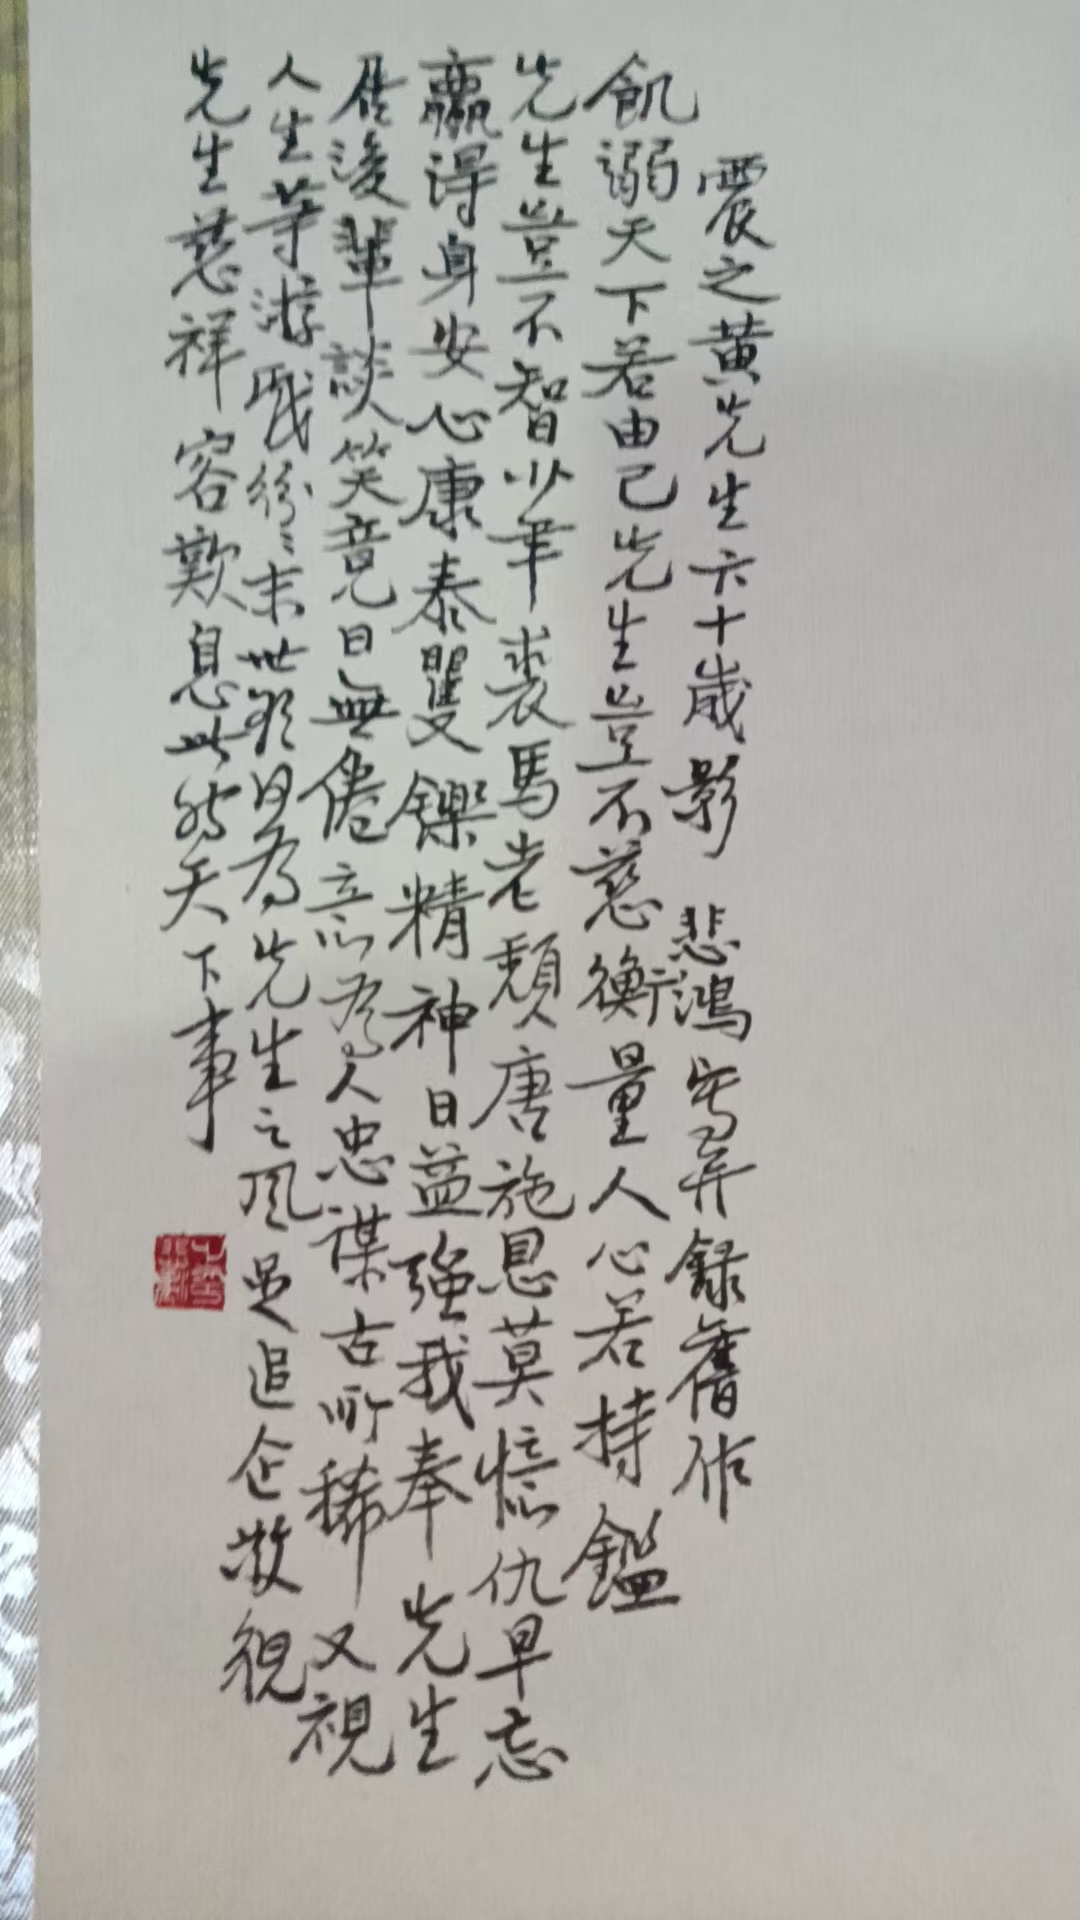 震之黃先生六十歲影 悲鴻寫并錄舊作
飢溺天下若由己先生豈不慈衡量人心若持鑑
先生豈不智少年裘馬老頹唐施恩莫憶仇早忘
贏得身安心康泰矍鑠精神日益強我奉先生
居後輩談笑竟日無倦意為人忠謀古所稀又視
人生等游戲紛紛末世欲曷為先生之風足追企敬視
先生慈祥容歎息此時天下事